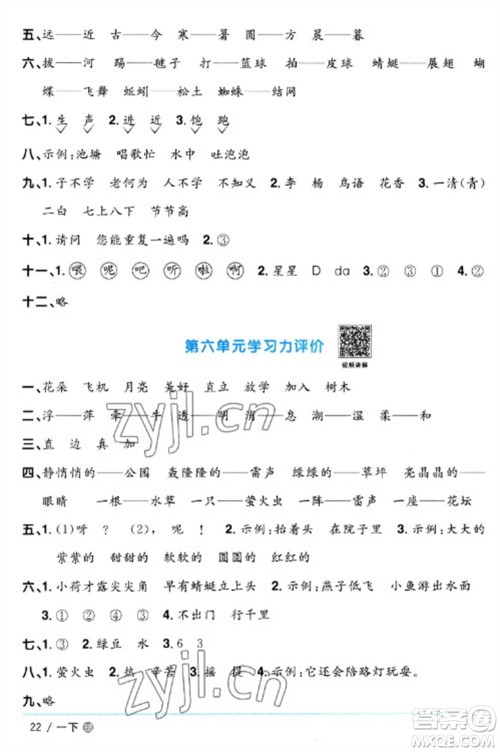 五、远——近 古——今 寒——暑 圆——方 晨——暮
六、拔——河 踢——毽子 打——篮球 拍——皮球 蜻蜓——展翅 蝴
蝶——飞舞 蚯蚓——松土 蜘蛛——结网
七、1.生 声 2.进 近 3.饱 跑
八、示例:池塘 唱歌忙 水中 吐泡泡
九、1.子不学 老何为 人不学 不知义 2.李 杨 鸟语 花香 3.一清(青)
二白 七上八下 节节高
十、1.请问 您能重复一遍吗 2.③
十一、1.喂 呢 吧 听 啦 啊 2.星星 D da 3.② ③ ① 4.②
十二、略
第六单元学习力评价
视频讲解
一、花朵 飞机 月亮 美好 直立 放学 加入 树木
二、浮——萍 牵——牛 萤——雨——息 潮——湿 柔——和
三、直 边 真 加
四、静悄悄的——公园 轰隆隆的——雷声 绿绿的——草坪 亮晶晶的——
眼睛 一根——水草 一只——萤火虫 一阵——雷声 一座——花坛
五、1.(1)呀 ? (2), 呢 ! 2.示例:抬着头 在院子里 3.示例:大大的
紫紫的 甜甜的 软软的 圆圆的 红红的
六、1.小荷才露尖尖角 早有蜻蜓立上头 2.示例:燕子低飞 小鱼游出水面
3.① ② ④ ③ 4.不出门 行千里
七、1.② 2.绿豆 水 3.6 3
八、1.萤火虫 2.热 辛苦 3.摇 提 4.示例:它还会陪路灯玩耍。
九、略
22 / 一下
zyjl.cn
zyjl.cn
答案圈
MXQE.COM